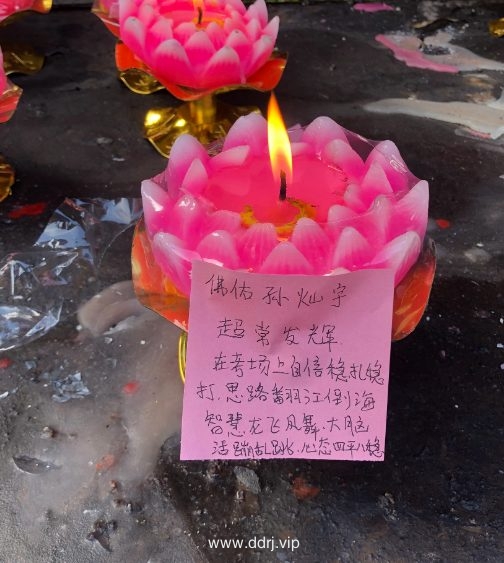 佛佑孙灿宇
超常发辉.
在考场上自信稳扎稳
打.思路翻江倒海
智慧龙飞凤舞.大脑
活蹦乱跳.心态四平八稳
www.ddrj.vip